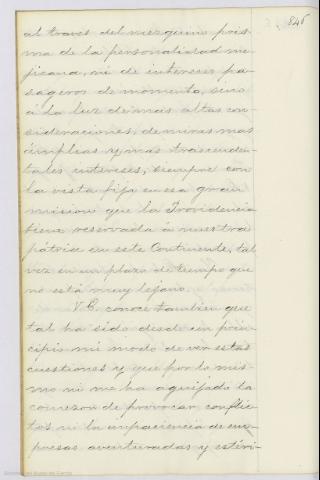 846
al travès del mezquino pris-
ma de la personalidad me-
jicana, ni de intereses pa-
sageros de momento, sino
á la luz de mas altas con-
sideraciones, de miras mas
ámplias y mas trascenden-
tales intereses, siempre con
la vista fija en esa gran
mision que la Providencia
tiene reservada á nuestra
pátria en este Continente, tal
vez en un plazo de tiempo que
no está muy lejano.
V.E. conoce tambien que
tal ha sido desde un prin-
cipio mi modo de ver estas
cuestiones y que por lo mis-
mo ni me ha aguijado la
comezon de provocar conflic-
tos ni la impaciencia de em-
presas aventuradas y estéri-